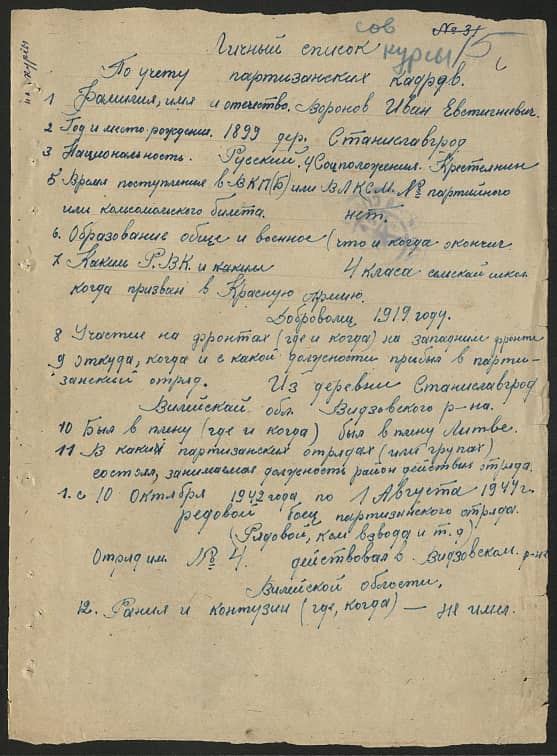 сов
курсы
№ 31
15
Личный список
По учету партизанских кадров.
1 Фамилия, имя и отчество. Воронов Иван Евстигневич.
2 Год и место рождения. 1899 дер. Станиславгрод
3 Национальность. Русский. 4 Соцположения. Крестьянин
5 Время поступления в ВКП(Б) или ВЛКСМ. № партийного
или комсомольского билета. нет.
6. Образование обще и военное (что и когда окончиг
7. Каким Р.В.К. и каким 4 класа сельской школ
когда призван в Красную Армию.
Доброволец 1919 году.
8 Участие на фронтах (где и когда) на западним фронте
9 откуда, когда и с какой должности прибыл в парти-
занский отряд. Из деревни Станиславгрод
Вилейской обл. Видзовского р-на.
10 Был в плену (где и когда) был в плену Литве.
11 В каких партизанских отрядах (или групах)
состоял, занимаемая должность район действия отряда.
1. с 10 Октября 1942 года по 1 Августа 1944 г.
редовой боец партизанского отряда.
(Рядовой, ком взвода и т.д)
Отряд им. № 4. действовал в Видзовском р-не
Вилейской области.
12. Рания и контузии (где, когда) — не имел.